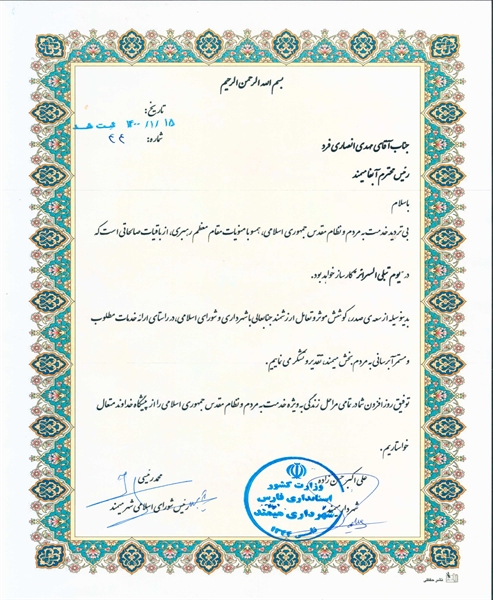 بسم الله الرحمن الرحیم
تاریخ: ۱۴۰۰/۱/۱۵ ثبت شد
شماره: ۴۴
جناب آقای مهدی انصاری فرد
رئیس محترم آبفا میمند
باسلام
بی تردید خدمت به مردم و نظام مقدس جمهوری اسلامی، همسو با منویات مقام معظم رهبری، از باقیات صالحاتی است که
در «یوم تبلی السرائر» کارساز خواهد بود.
بدینوسیله از سعه ی صدر، کوشش موثر و تعامل ارزشمند جنابعالی با شهرداری و شورای اسلامی، در راستای ارائه خدمات مطلوب
و مستمر آبرسانی به مردم بخش میمند، تقدیر و تشکر می نماییم.
توفیق روزافزون شما در تمامی مراحل زندگی به ویژه خدمت به مردم و نظام مقدس جمهوری اسلامی را از پیشگاه خداوند متعال
خواستاریم.
علی اکبر حسن زاده
شهردار میمند
محمد رئیسی
رئیس شورای اسلامی شهر میمند
وزارت کشور
استانداری فارس
شهرداری میمند